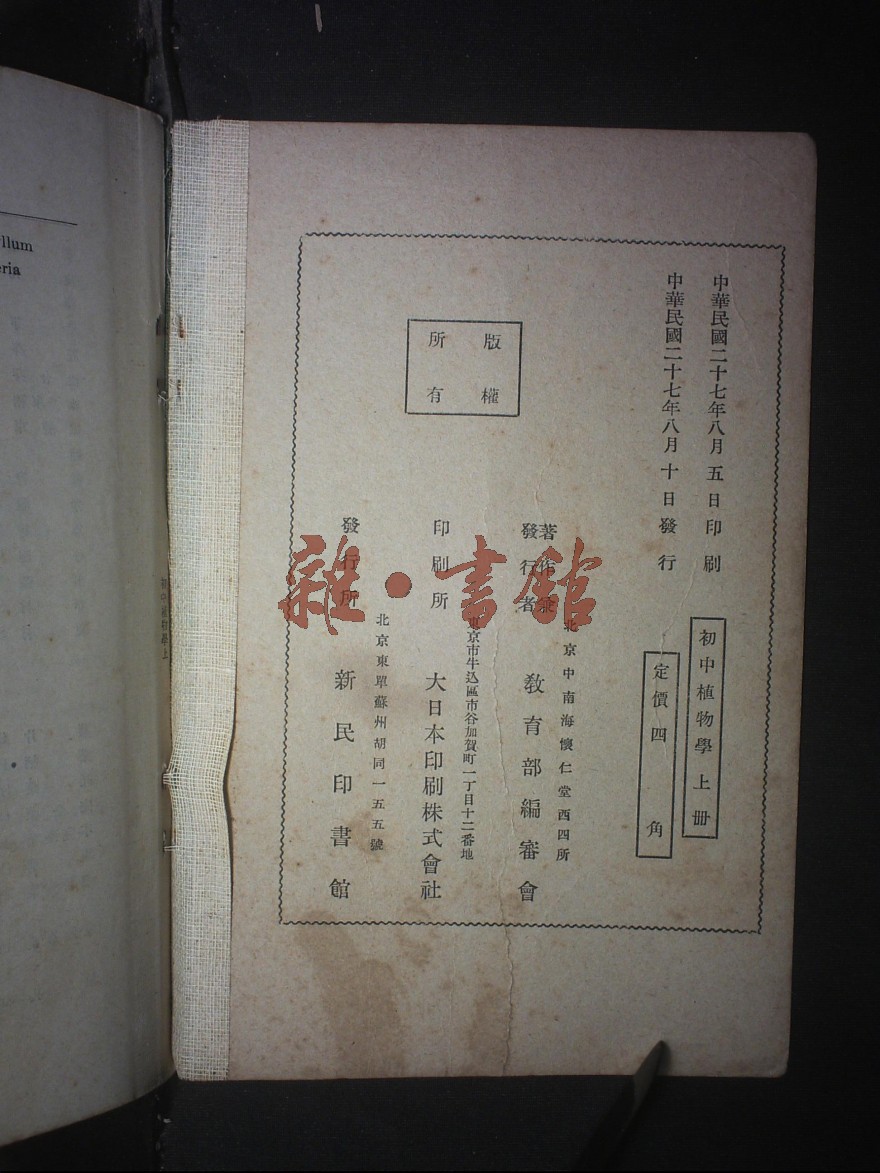 中華民國二十七年八月五日印刷
中華民國二十七年八月十日發行
初中植物學上册
定價四角
版權
所有
著作兼
發行者
北京中南海懷仁堂西四所
教育部編審會
印刷所
東京市牛込區市谷加賀町一丁目十二番地
大日本印刷株式會社
發行所
北京東單蘇州胡同一五五號
新民印書館
雜·書館
llum
eria